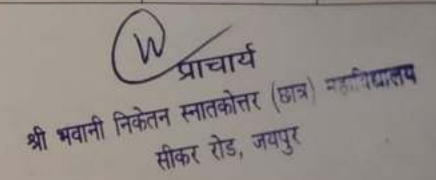 प्राचार्य
श्री भवानी निकेतन स्नातकोत्तर (छात्र) महाविद्यालय
सीकर रोड, जयपुर